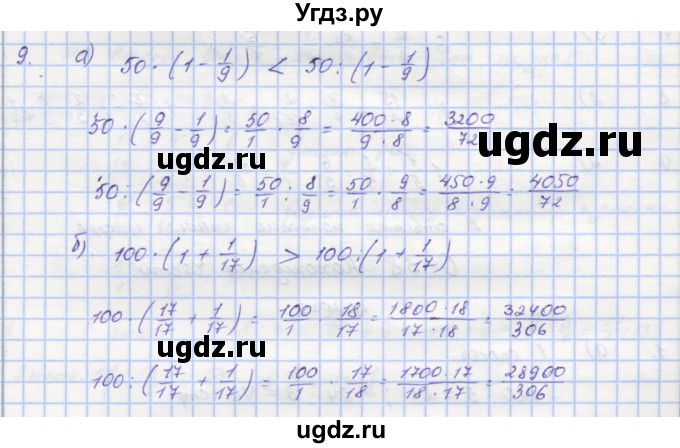 Угдз.ру
9. а) 50 · (1 - 1/9) < 50 : (1 - 1/9)
50 · (9/9 - 1/9) = 50/1 · 8/9 = 400 · 8/9 · 8 = 3200/72
ugdz.ru ugdz.ru
50 : (9/9 - 1/9) = 50/1 : 8/9 = 50/1 · 9/8 = 450 · 9/8 · 9 = 4050/72
б) 100 · (1 + 1/17) > 100 : (1 + 1/17)
100 · (17/17 + 1/17) = 100/1 · 18/17 = 1800 · 18/17 · 18 = 32400/306
ugdz.ru
100 : (17/17 + 1/17) = 100/1 · 17/18 = 1700 · 17/18 · 17 = 28900/306
ugdz.ru ugdz.ru